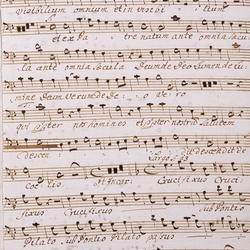 visibilium omnium et in visibi - lium
et ex Pa - tre natum ante omnia
la ante omnia Secula Deum de Deo lumen de lu
mine Deum verum de De - o ve ro
qui propter nos homines et propter nostram Salutem
descen - descendit de
coe lis
Crucifixus
fixus Crucifixus sub
Pilato sub Pontio Pilato passus